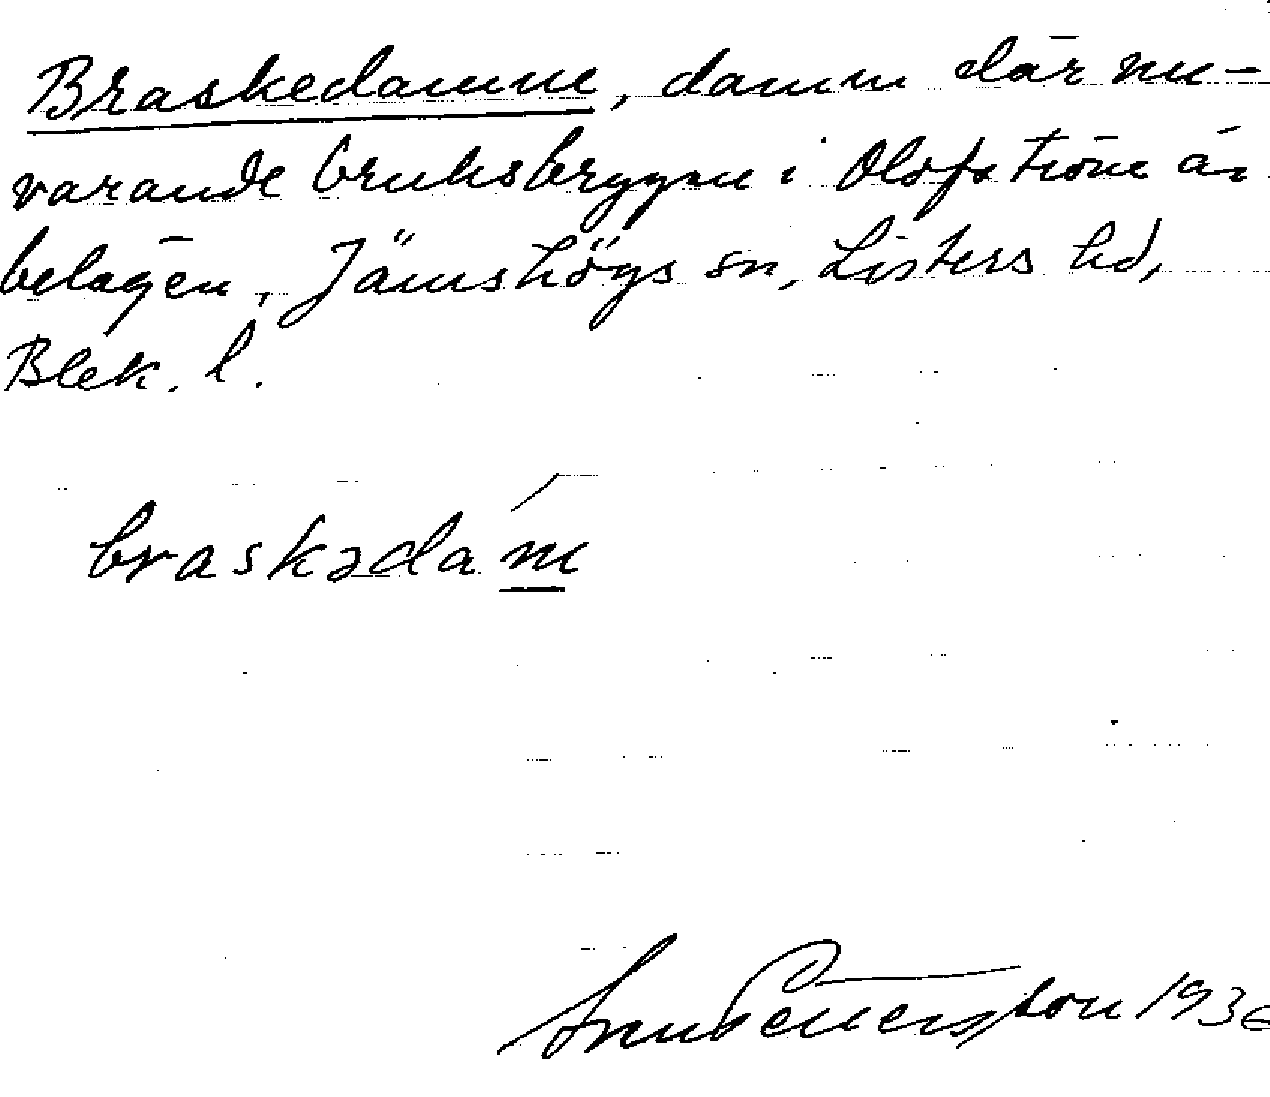 Braskedamm, damm där nu-
varande bruksbryggan i Olofström är
belägen, Jämshögs sn, Listers hd,
Blek. l.
braskədam
Pettersson 1936